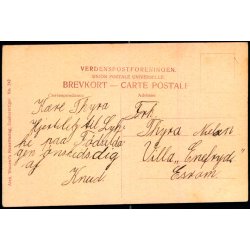 VERDENSPOSTFORENINGEN.
UNION POSTALE UNIVERSELLE.
BREVKORT — CARTE POSTALE
Correspondance:
Adresse:
Kære Thyra
Hjerteligt til Lyk-
ke paa Fødselsda-
gen ønskes dig
af
Knud
Frk.
Thyra Nielsen
Villa „
Esrom